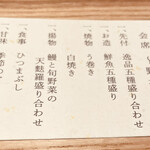 会席
一、先付 逸品五種盛り
一、お造 鮮魚五種盛り
一、焼物 う巻き
白焼き
一、揚物 鰻と旬野菜の
天麩羅盛り合わせ
一、食事 ひつまぶし
一、甘味 季節の